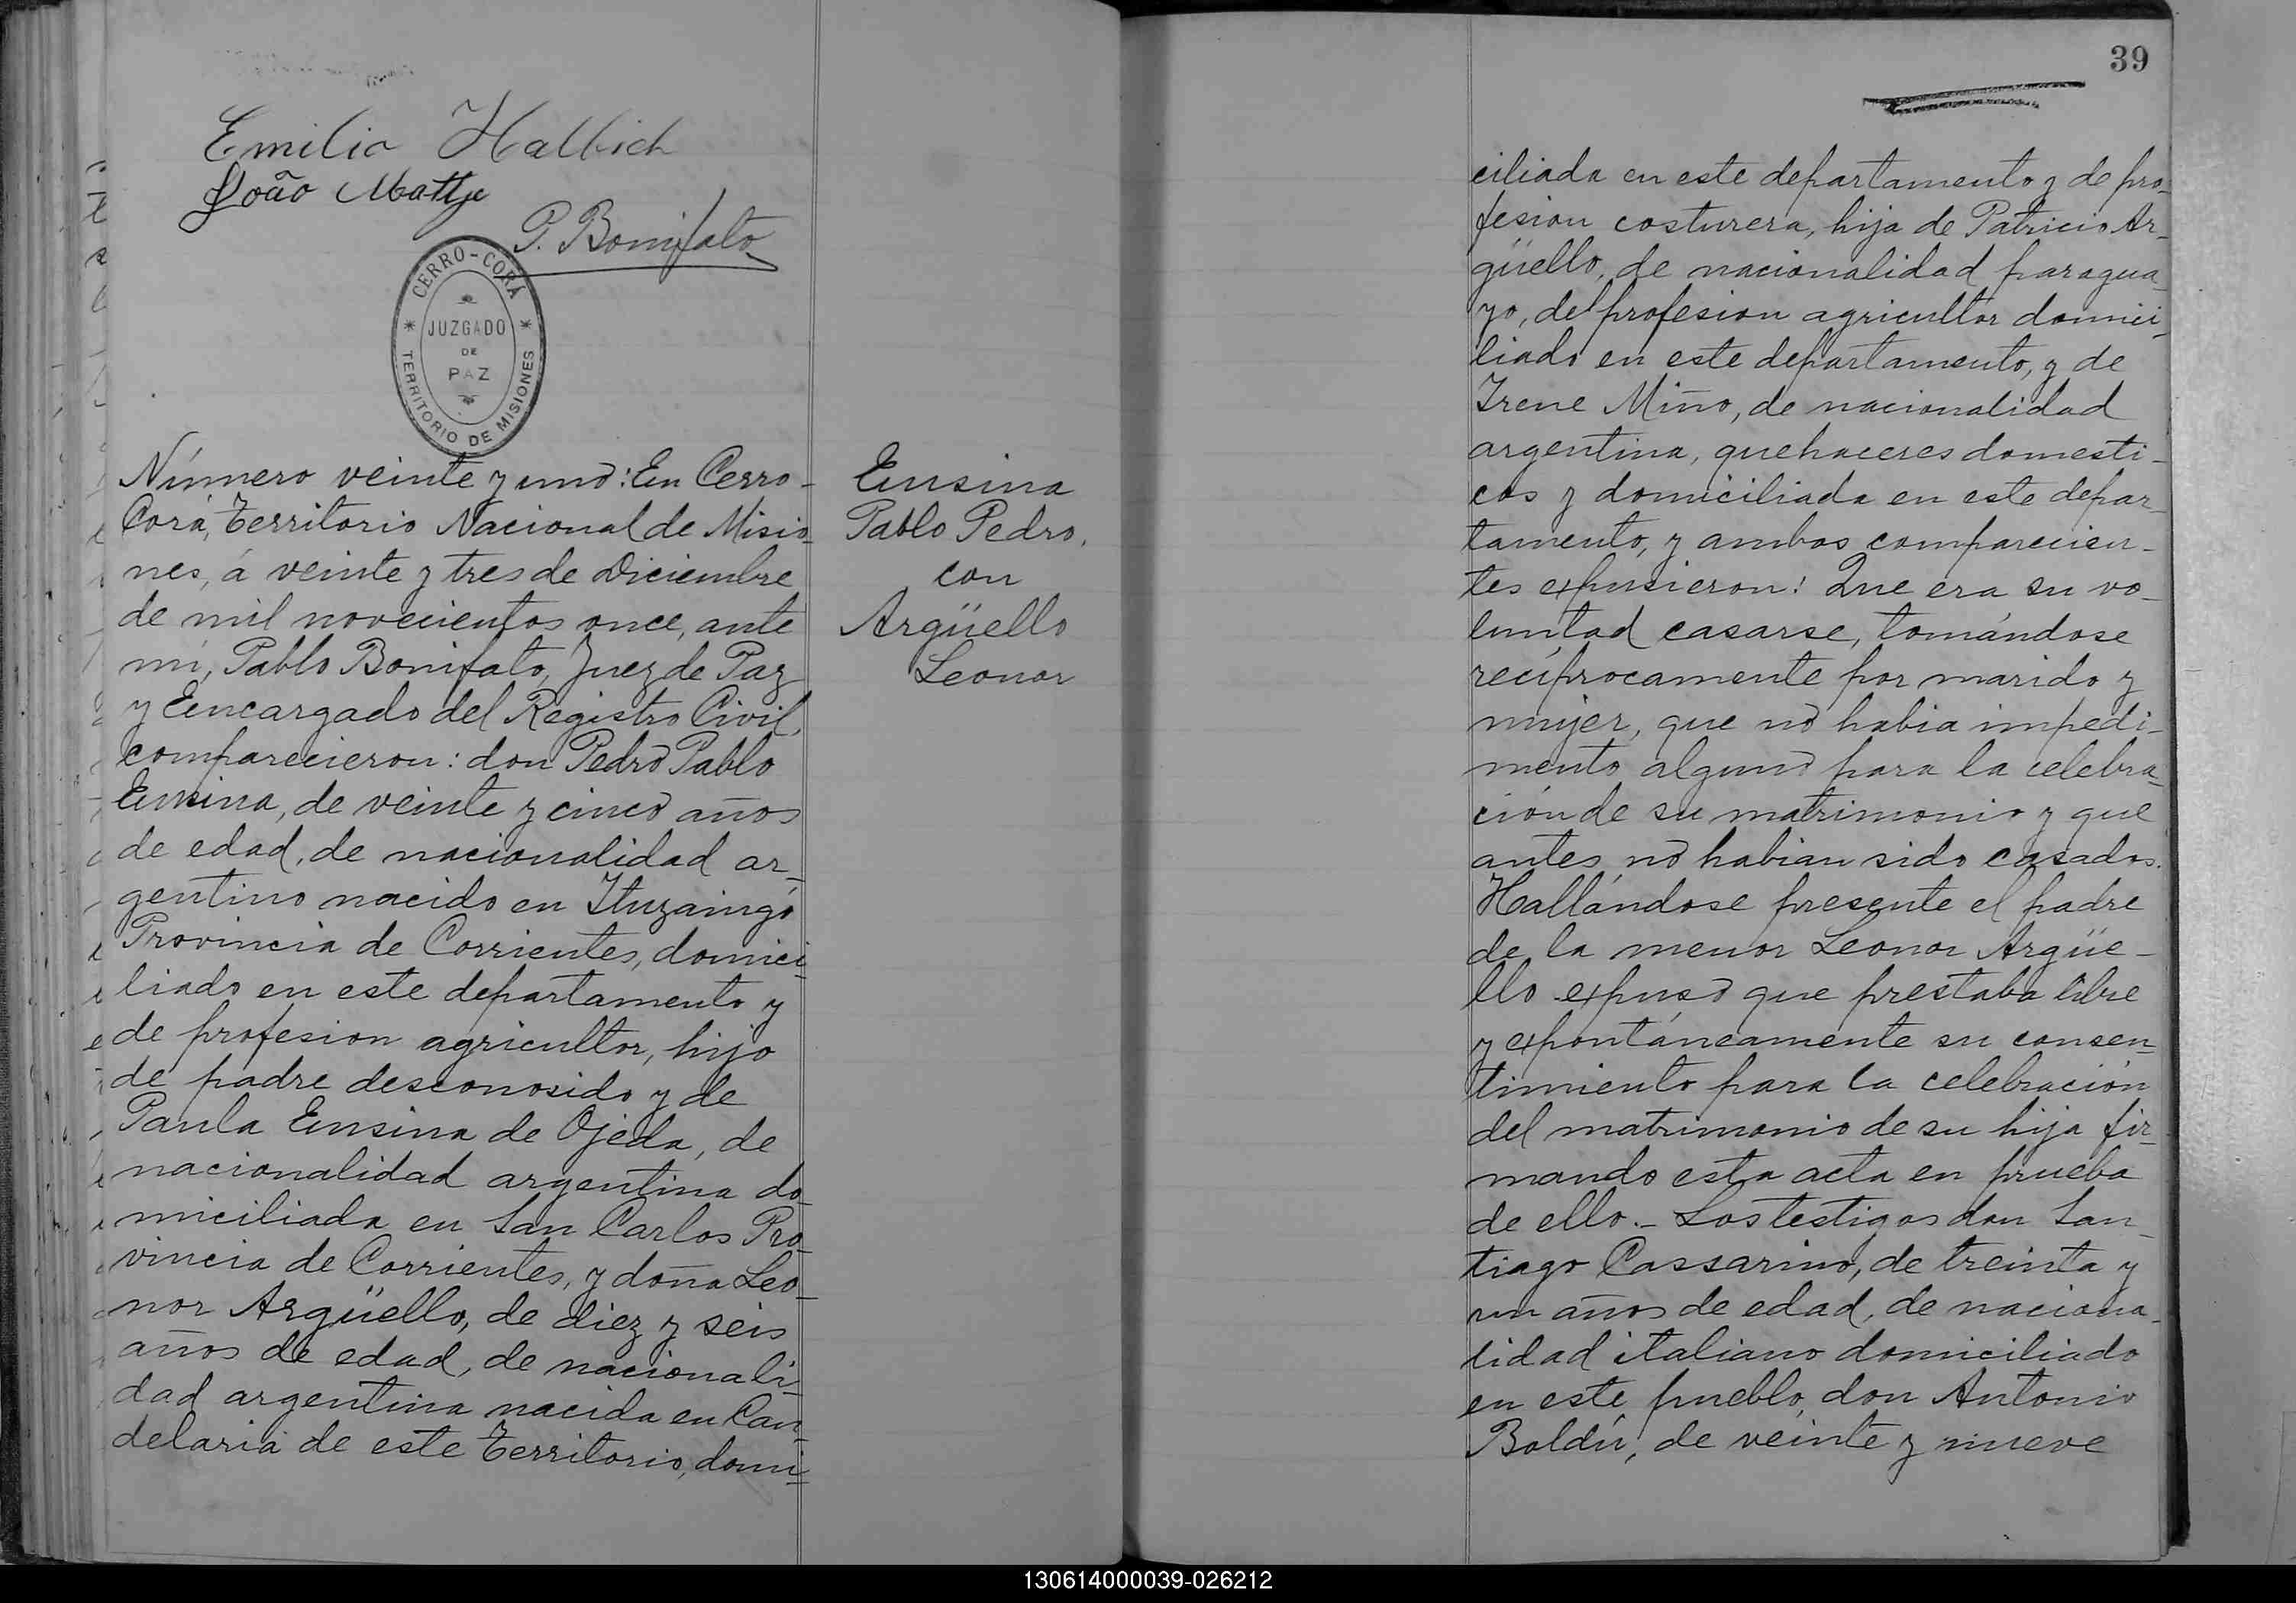 Emilio Halbich
João Mattje
P. Bonifato
CERRO-CORÁ
* JUZGADO *
DE
PAZ
TERRITORIO DE MISIONES
Número veinte y uno: En Cerro-
Corá, Territorio Nacional de Misio-
nes, á veinte y tres de Diciembre
de mil novecientos once, ante
mi, Pablo Bonifato, Juez de Paz
y Encargado del Registro Civil,
comparecieron: don Pedro Pablo
Ensina, de veinte y cinco años
de edad, de nacionalidad ar-
gentino nacido en Ituzaingó
Provincia de Corrientes, domici-
liado en este departamento y
de profesion agricultor, hijo
de padre desconosido y de
Paula Ensina de Ojeda, de
nacionalidad argentina do-
miciliada en San Carlos Pro-
vincia de Corrientes, y doña Leo-
nor Argüello, de diez y seis
años de edad, de nacionali-
dad argentina nacida en Can-
delaria de este Territorio, domi-
Ensina
Pablo Pedro,
con
Argüello
Leonor
39
ciliada en este departamento y de pro-
fesion costurera, hija de Patricio Ar-
güello, de nacionalidad paragua-
yo, de profesion agricultor domici-
liado en este departamento, y de
Irene Miño, de nacionalidad
argentina, quehaceres domesti-
cos y domiciliada en este depar-
tamento, y ambos comparecien-
tes expusieron: Que era su vo-
luntad casarse, tomándose
recíprocamente por marido y
mujer, que no habia impedi-
mento alguno para la celebra-
ción de su matrimonio y que
antes no habian sido casados.
Hallándose presente el padre
de la menor Leonor Argüe-
llo expuso que prestaba libre
y expontáneamente su consen-
timiento para la celebración
del matrimonio de su hija fir-
mando esta acta en prueba
de ello.- Los testigos don San-
tiago Cassarino, de treinta y
un años de edad, de naciona-
lidad italiano domiciliado
en este pueblo, don Antonio
Boldú, de veinte y nueve
130614000039-026212